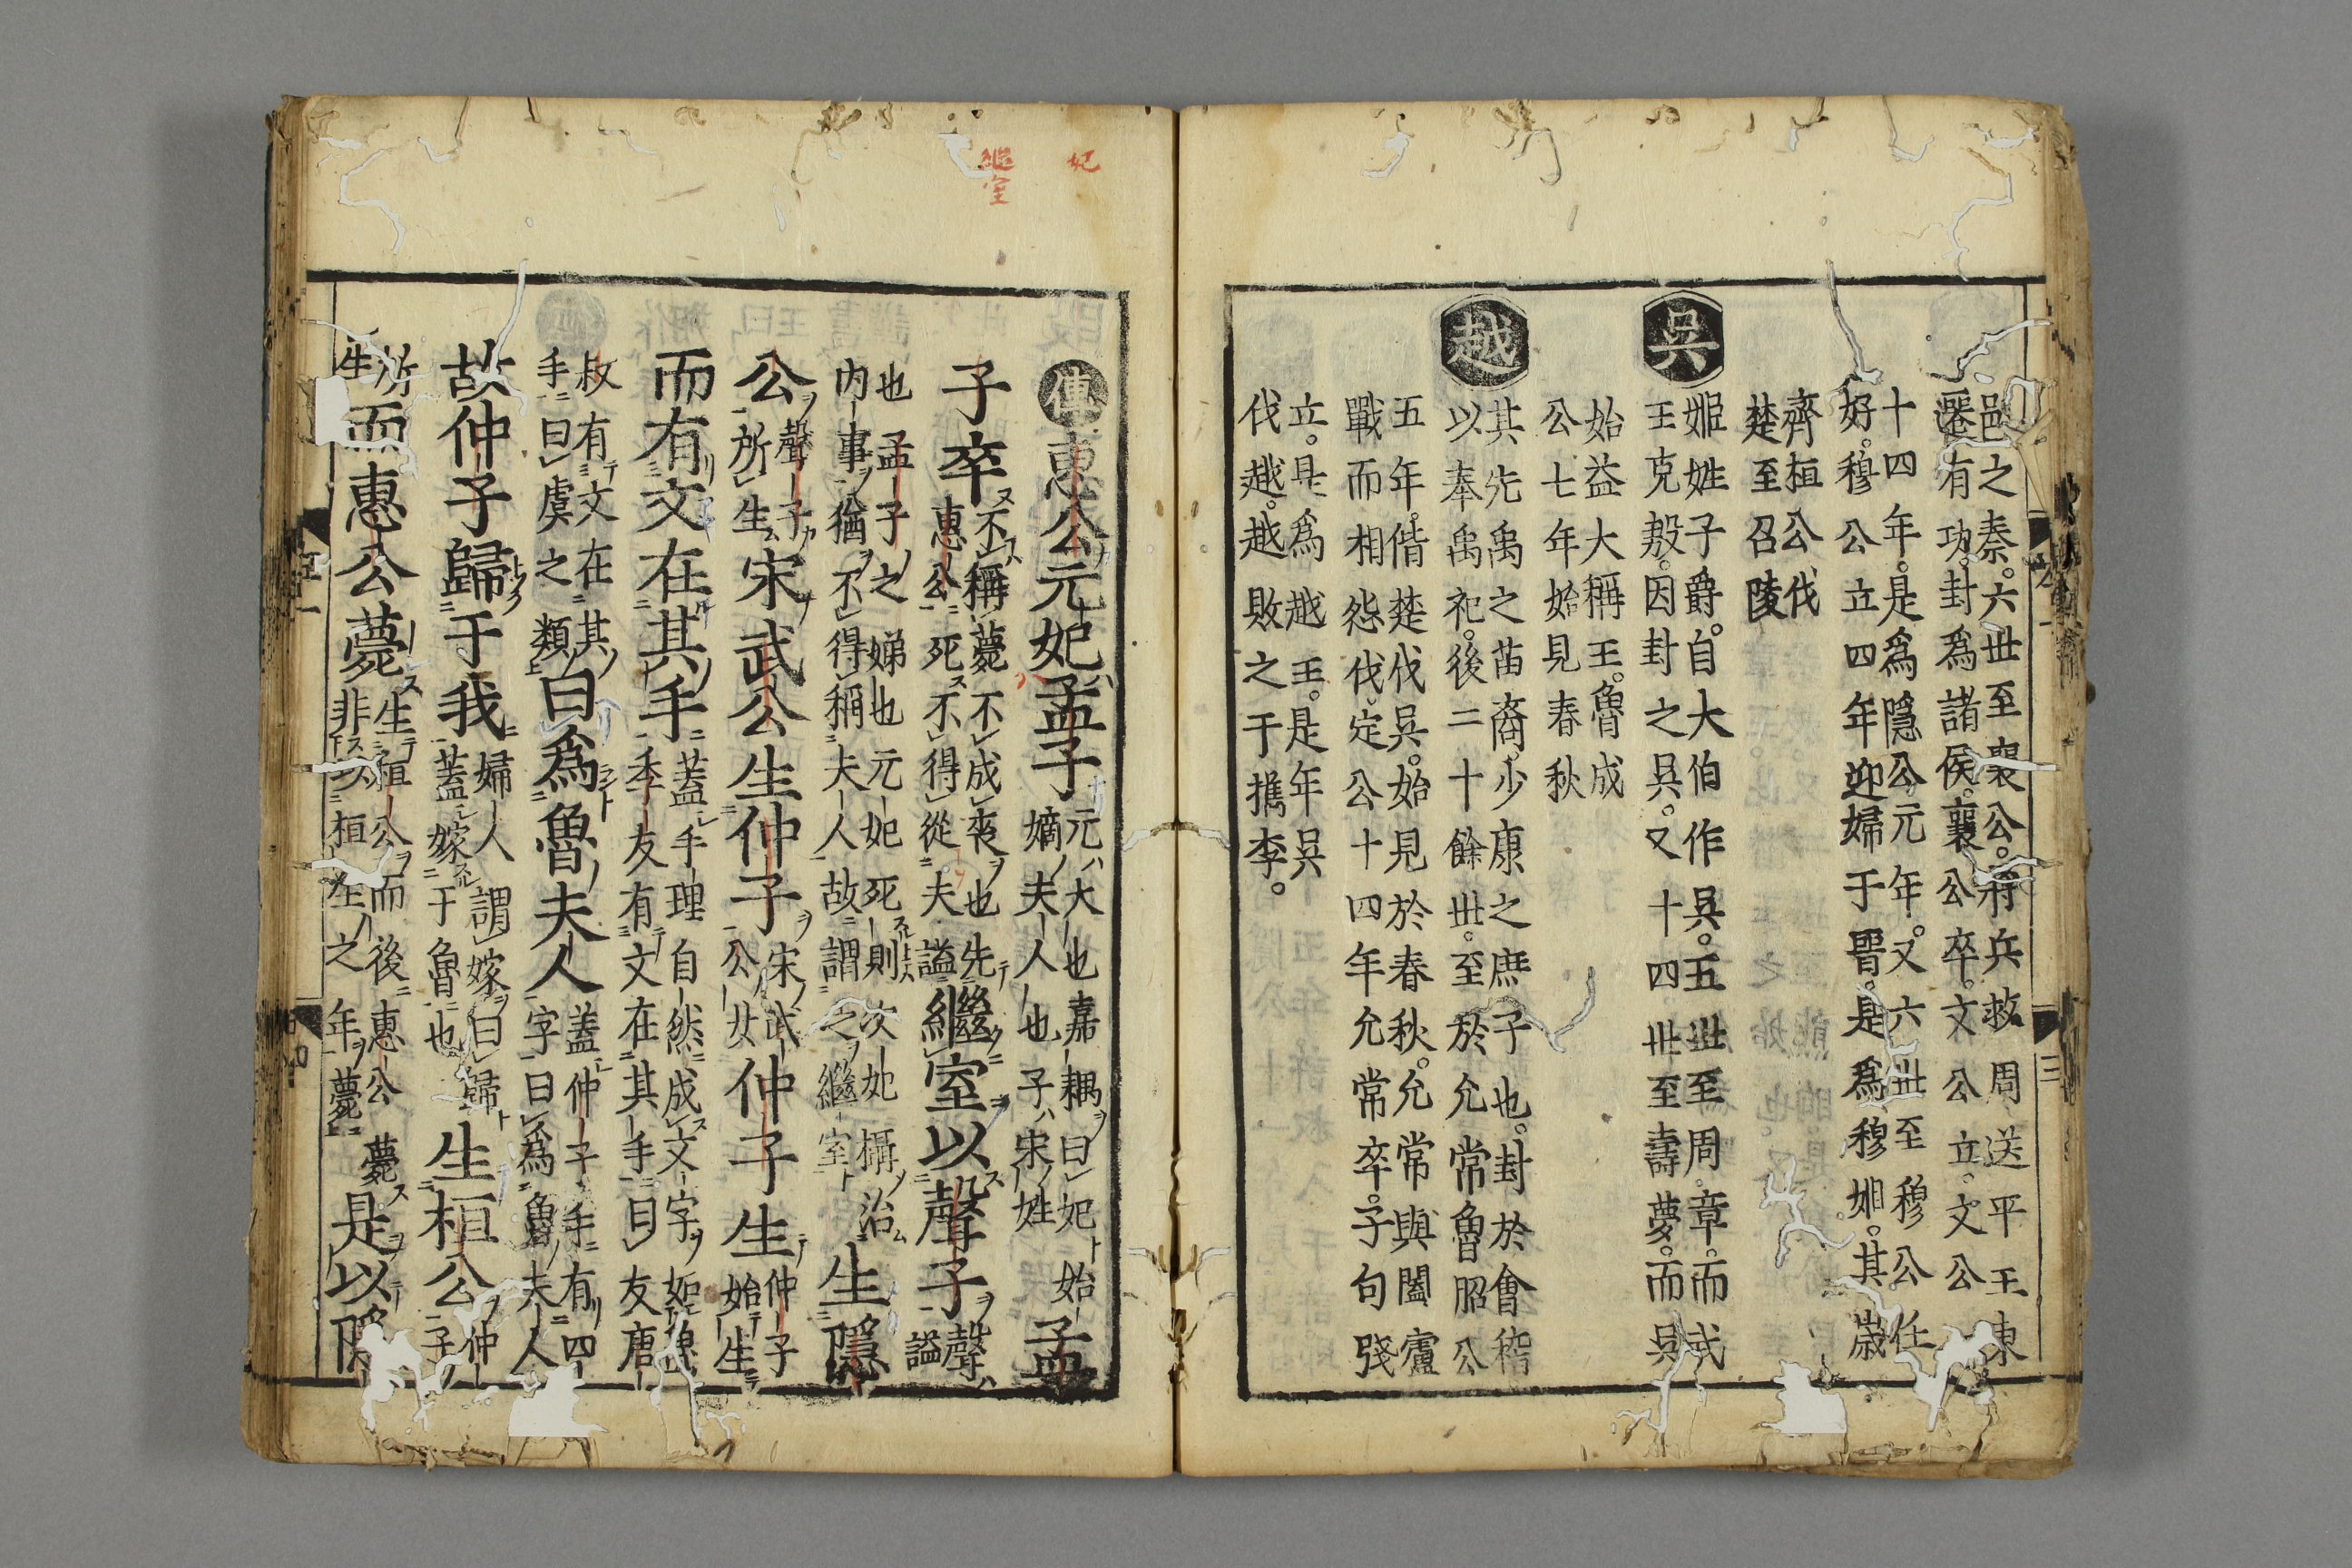 邑之秦。六世至襄公。將兵救周送平王東
遷有功。封爲諸侯。襄公卒。文公立。文公
十四年。是爲隱公元年。又六世至穆公任
好。穆公立四年迎婦于晋。是爲穆姬。其歳
齊桓公伐
楚至召陵
吳
姬姓子爵。自大伯作吳。五世至周章。而武
王克殷。因封之吳。又十四世至壽夢。而吳
始益大稱王。魯成
公七年始見春秋
越
其先禹之苗裔。少康之庶子也。封於會稽
以奉禹祀。後二十餘世。至於允常魯昭公
五年。偕楚伐吳。始見於春秋。允常與闔廬
戰而相怨伐。定公十四年允常卒。子句踐
立。是爲越王。是年吳
伐越。越敗之于擕李。
三
妃
繼室
傳惠公元妃孟子元ハ大也嘉耦ヲ曰妃ト始
嫡ノ夫人也子ハ宋ノ姓孟
子卒不稱薨不成喪ヲ也先
惠公死不得從夫謚繼室以聲子聲ハ
謚
也孟子之娣也元妃死則次妃攝治
内事猶不得稱夫人故謂之繼室ト生隱
公聲子
所生宋武公生仲子宋武
公女仲子生仲子
始生
而有文在其手蓋手理自然成文字如
季友有文在其手曰友唐
叔有文在其
手曰虞之類曰爲魯夫人蓋仲子手有四
字曰爲魯夫人
故仲子歸于我婦人謂嫁曰歸
蓋嫁于魯也生桓公仲
子
所
生而惠公薨生桓公而後惠公薨
非以桓生之年薨是以隱